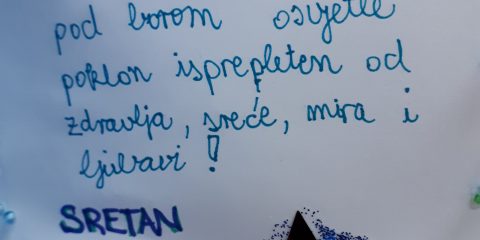 pod borom osvjetle
poklon isprepleten od
zdravlja, sreće, mira i
ljubavi!
SRETAN